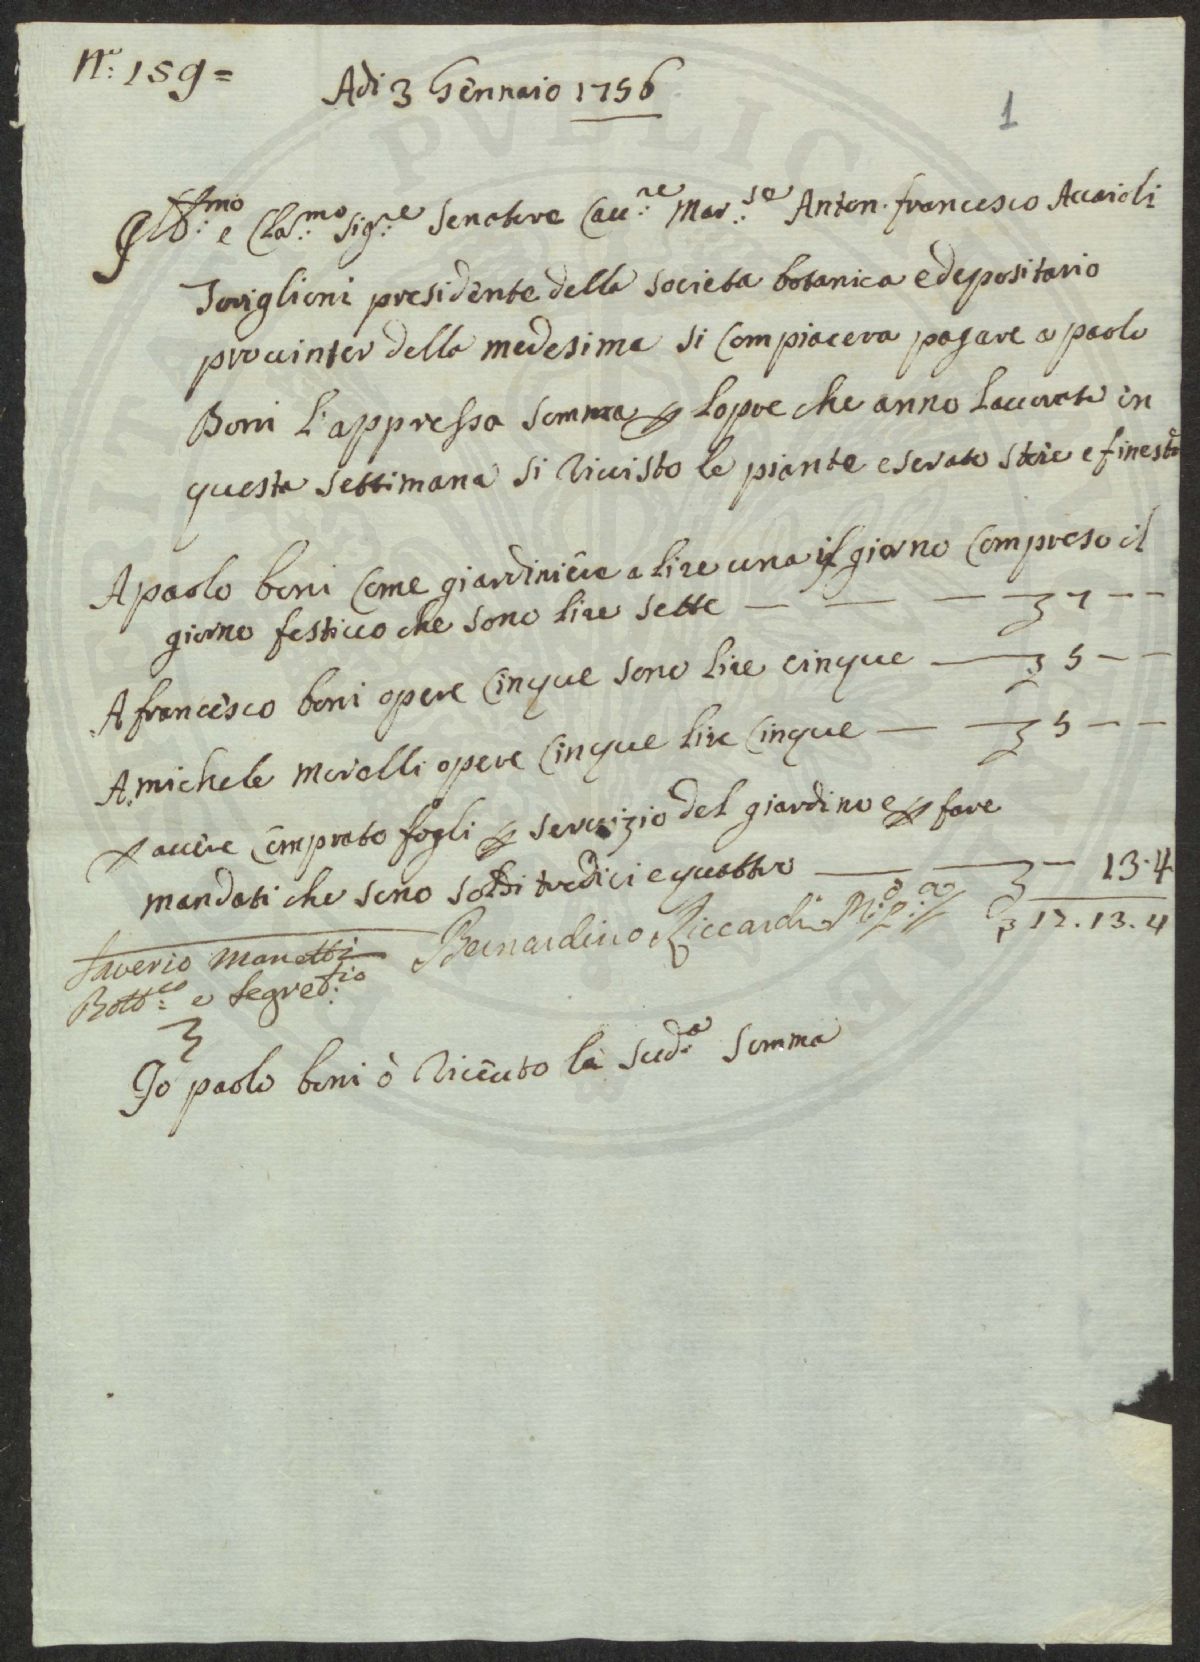 N.º 159=
Adi 3 Gennaio 1756
1
Ill.mo e Clar.mo Sig.re Senatore Cau.re Mar.se Anton. francesco Accaioli
Toriglioni presidente della societa botanica e depositario
prouinter della medesima si Compiacera pagare a paolo
Boni l'appressa somma p lopre che anno Lauorate in
questa settimana si riuisto le piante e serato stoie e finestre
A paolo boni Come giardiniere a lire una il giorno Compreso il
giorno festiuo che sono lire sette — — — — 7 — —
A francesco boni opere Cinque sono lire cinque — 5 — —
A michele morelli opere Cinque lire Cinque — — 5 — —
p auere Comprato fogli p seruizio del giardino e p fare
mandati che sono soldi tredici e quattro — — — 13.4
17.13.4
Bernardino Riccardi M.º P.ª
Saverio Manetti
Bott.co e Segret.rio
Io paolo boni ò riceuto la sud.a somma
PVBLIC